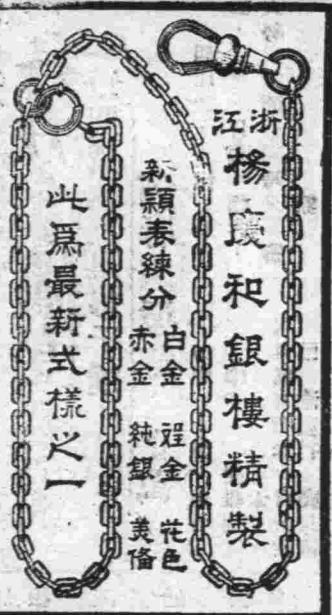 浙江
楊慶和銀樓精製
新穎表練分
白金
赤金
純銀
花色
美俻
此爲最新式樣之一